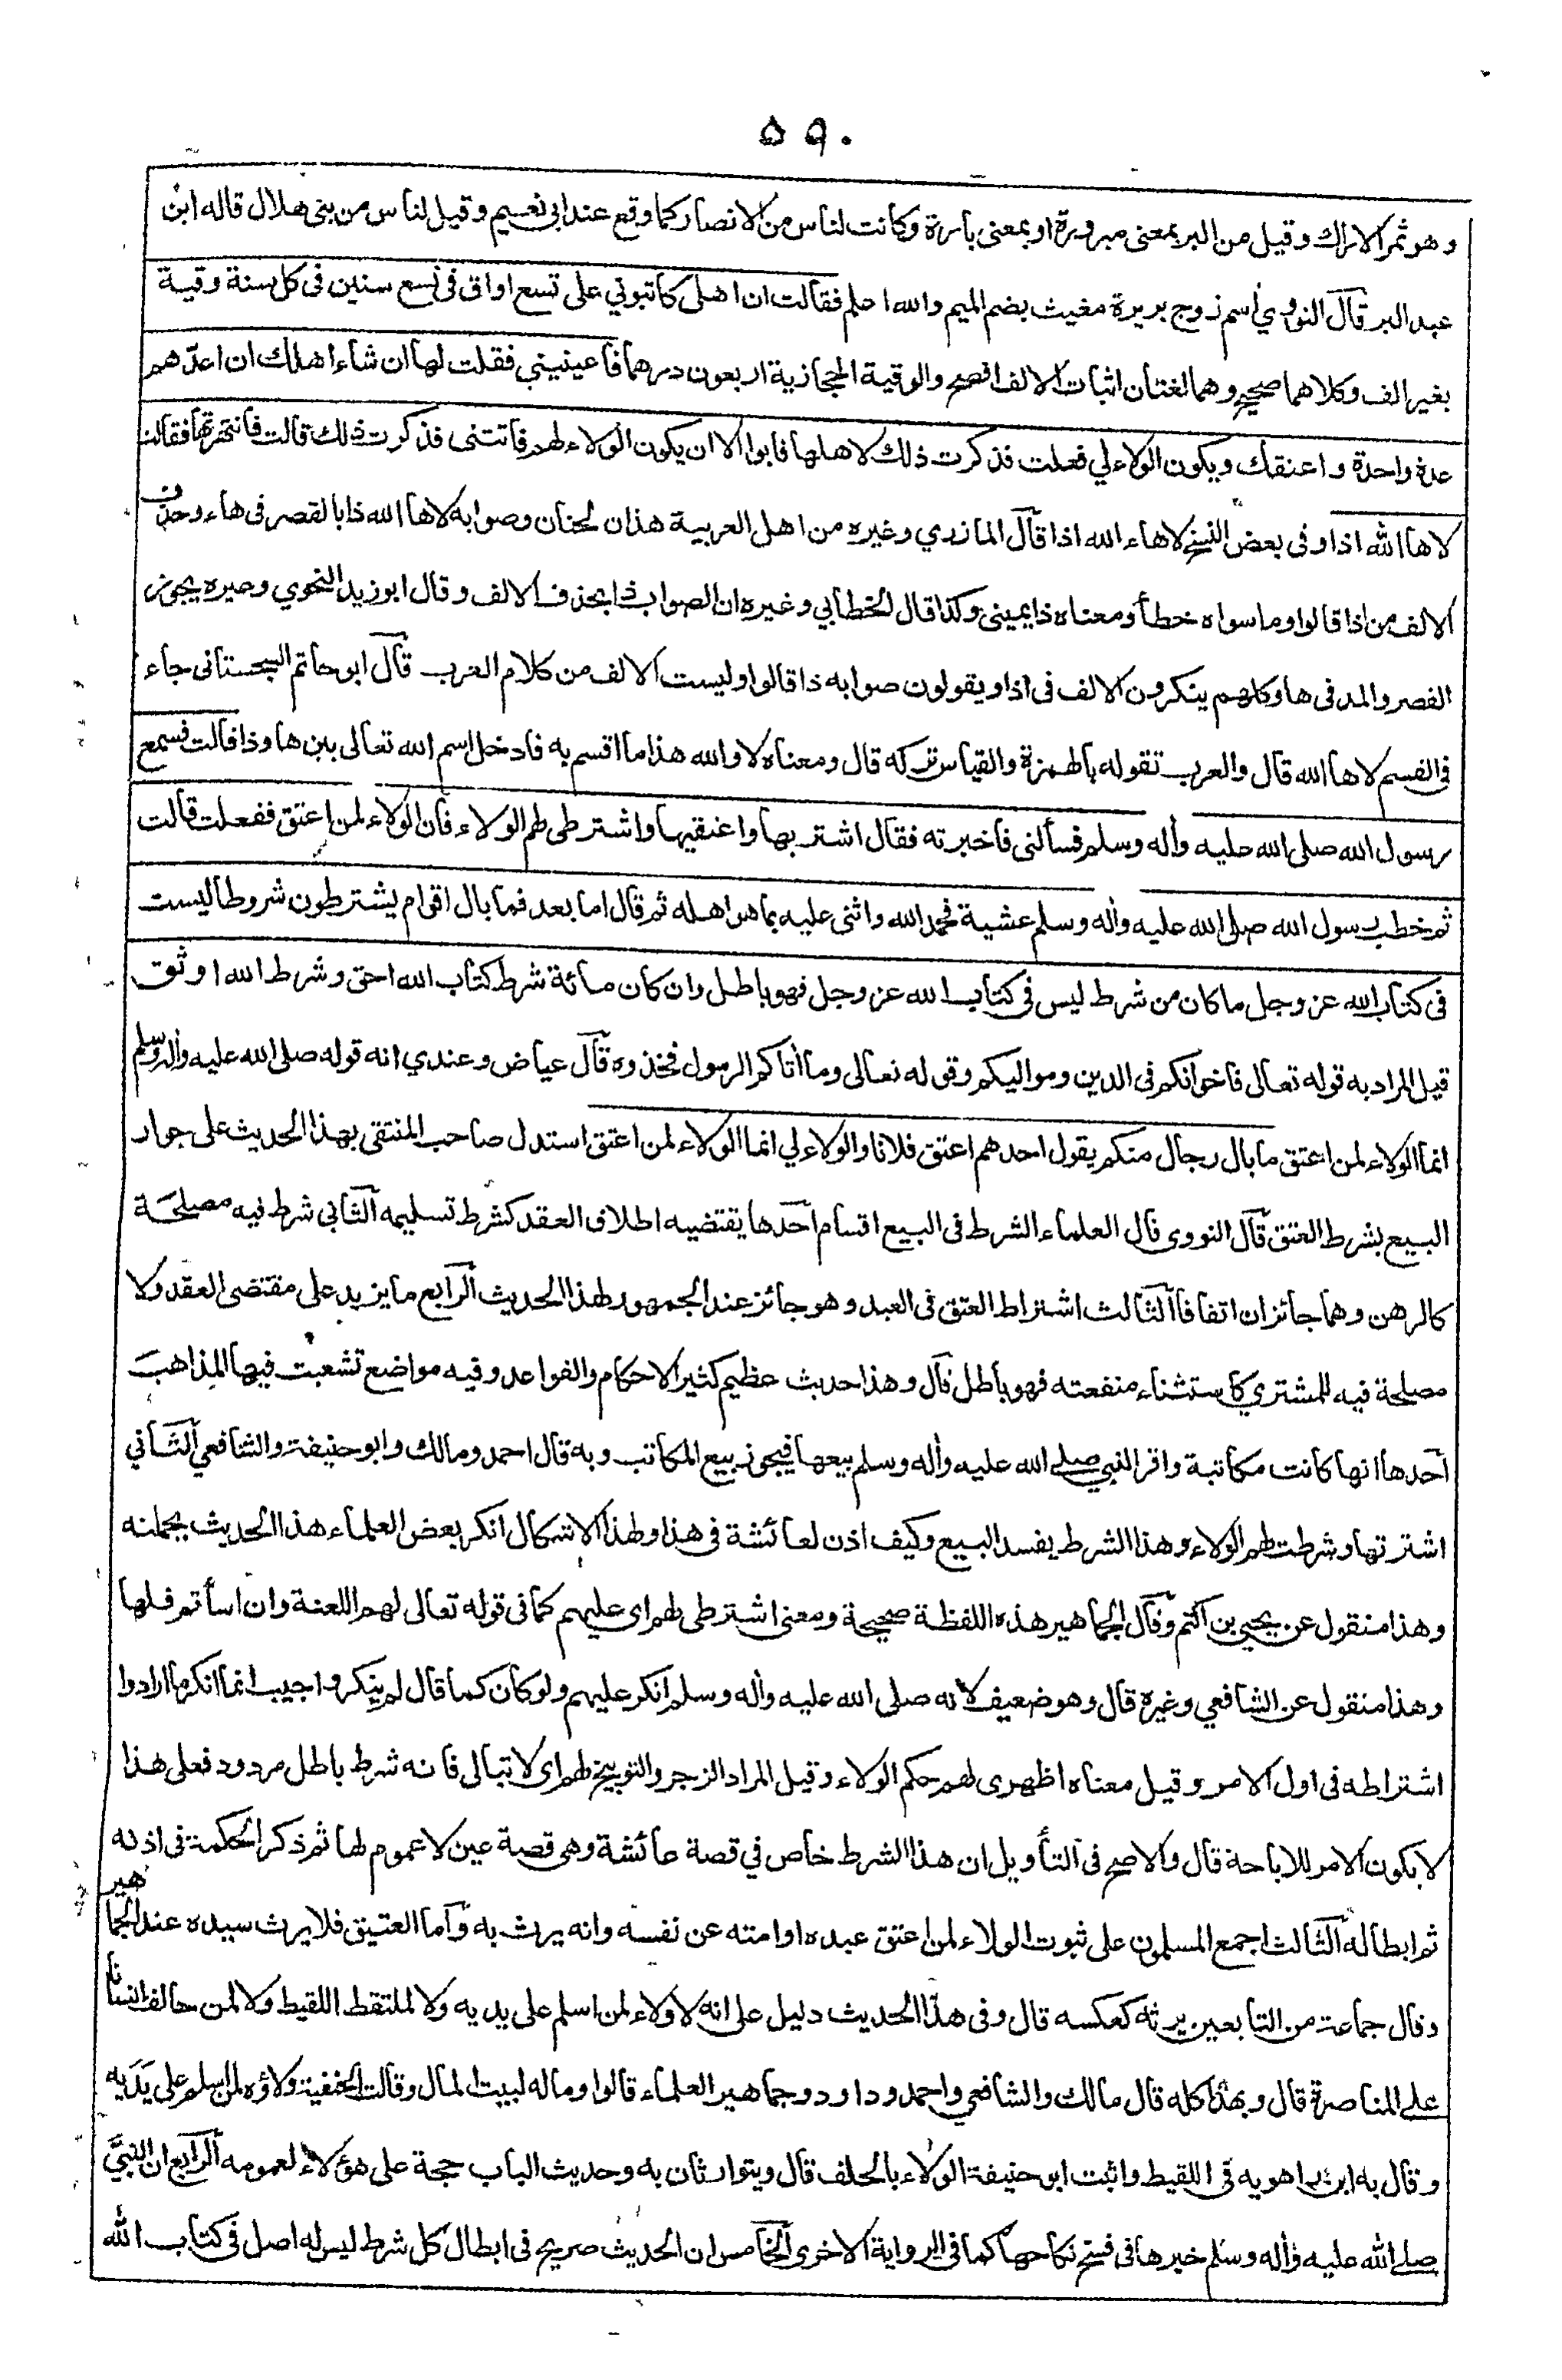 ٥٩٠
وهو ثمر الاراك وقيل من البر بمعنى مبرورة او بمعنى بارة وكانت لناس من الانصار كما وقع عند ابى نعيم وقيل لناس من بنى هلال قاله ابن
عبد البر قال النووي اسم زوج بريرة مغيث بضم الميم والله اعلم فقالت ان اهلى كاتبوني على تسع اواق فى تسع سنين فى كل سنة وقية
بغير الف وكلاهما صحيح وهما لغتان اثبات الالف افصح والوقية الحجازية اربعون درهما فاعينيني فقلت لها ان شاء اهلك ان اعدّ هم
عدة واحدة واعتقك ويكون الولاء لي فعلت فذكرت ذلك لاهلها فابوا الا ان يكون الولاء لهم فاتتنى فذكرت ذلك قالت فانتهرتها فقالت
لاها الله اذا وفى بعض النسخ لاهاء الله اذا قال المازري وغيره من اهل العربية هذان لحنان وصوابه لاها الله ذا بالقصر فى هاء وحذف
الالف من اذا قالوا وما سواه خطأ ومعناه ذا يمينى وكذا قال الخطابي وغيره ان الصواب ذا بحذف الالف وقال ابو زيد النحوي وغيره يجوز
القصر والمد فى ها وكلهم ينكرون الالف فى اذا ويقولون صوابه ذا قالوا وليست الالف من كلام العرب قال ابو حاتم السجستانى جاء
فى القسم لاها الله قال والعرب تقوله بالهمزة والقياس تركه قال ومعناه لا والله هذا ما اقسم به فادخل اسم الله تعالى بين ها وذا قالت فسمع
رسول الله صلى الله عليه وأله وسلم فسألنى فاخبرته فقال اشتريها واعتقيها واشترطى لهم الولاء فان الولاء لمن اعتق ففعلت قالت
ثم خطب رسول الله صلى الله عليه وأله وسلم عشية فحمد الله واثنى عليه بما هو اهله ثم قال اما بعد فما بال اقوام يشترطون شروطا ليست
فى كتاب الله عز وجل ما كان من شرط ليس فى كتاب الله عز وجل فهو باطل وان كان مائة شرط كتاب الله احق وشرط الله اوثق
قيل المراد به قوله تعالى فاخوانكم فى الدين ومواليكم وقوله تعالى وما أتاكم الرسول فخذوه قال عياض وعندي انه قوله صلى الله عليه وأله وسلم
انما الولاء لمن اعتق ما بال رجال منكم يقول احدهم اعتق فلانا والولاء لي انما الولاء لمن اعتق استدل صاحب المنتقى بهذا الحديث على جواز
البيع بشرط العتق قال النووى قال العلماء الشرط فى البيع اقسام احدها يقتضيه اطلاق العقد كشرط تسليمه الثانى شرط فيه مصلحة
كالرهن وهما جائزان اتفاقا الثالث اشتراط العتق فى العبد وهو جائز عند الجمهور لهذا الحديث الرابع ما يزيد على مقتضى العقد ولا
مصلحة فيه للمشتري كاستثناء منفعته فهو باطل قال وهذا حديث عظيم كثير الاحكام والقواعد وفيه مواضع تشعبت فيها المذاهب
احدها انها كانت مكاتبة واقر النبي صلى الله عليه وأله وسلم بيعها فيجوز بيع المكاتب وبه قال احمد ومالك وابو حنيفة والشافعي الثاني
اشترتها وشرطت لهم الولاء وهذا الشرط يفسد البيع وكيف اذن لعائشة فى هذا ولهذا الاشكال انكر بعض العلماء هذا الحديث بجملته
وهذا منقول عن يحيى بن اكثم وقال الجماهير هذه اللفظة صحيحة ومعنى اشترطى لهم اى عليهم كما فى قوله تعالى لهم اللعنة وان اسأتم فلها
وهذا منقول عن الشافعي وغيره قال وهو ضعيف لانه صلى الله عليه وأله وسلم انكر عليهم ولو كان كما قال لم ينكر واجيب انما انكر ما ارادوا
اشتراطه فى اول الامر وقيل معناه اظهرى لهم حكم الولاء وقيل المراد الزجر والتوبيخ لهم اى لا تبالى فانه شرط باطل مردود فعلى هذا
لا يكون الامر للاباحة قال والاصح فى التأويل ان هذا الشرط خاص في قصة عائشة وهى قصة عين لا عموم لها ثم ذكر الحكمة فى اذنه
ثم ابطاله الثالث اجمع المسلمون على ثبوت الولاء لمن اعتق عبده او امته عن نفسه وانه يرث به واما العتيق فلا يرث سيده عند الجماهير
وقال جماعة من التابعين يرثه كعكسه قال وفى هذا الحديث دليل على انه لا ولاء لمن اسلم على يديه ولا لملتقط اللقيط ولا لمن حالف انسانا
على المناصرة قال وبهذا كله قال مالك والشافعي واحمد وداود وجماهير العلماء قالوا وماله لبيت المال وقالت الحنفية ولاؤه لمن اسلم على يديه
وقال به ابن راهويه فى اللقيط واثبت ابو حنيفة الولاء بالحلف قال ويتوارثان به وحديث الباب حجة على هؤلاء لعمومه الرابع ان النبيّ
صلى الله عليه وأله وسلم خيرها فى فسخ نكاحها كما فى الرواية الاخرى الخامس ان الحديث صريح فى ابطال كل شرط ليس له اصل فى كتاب الله